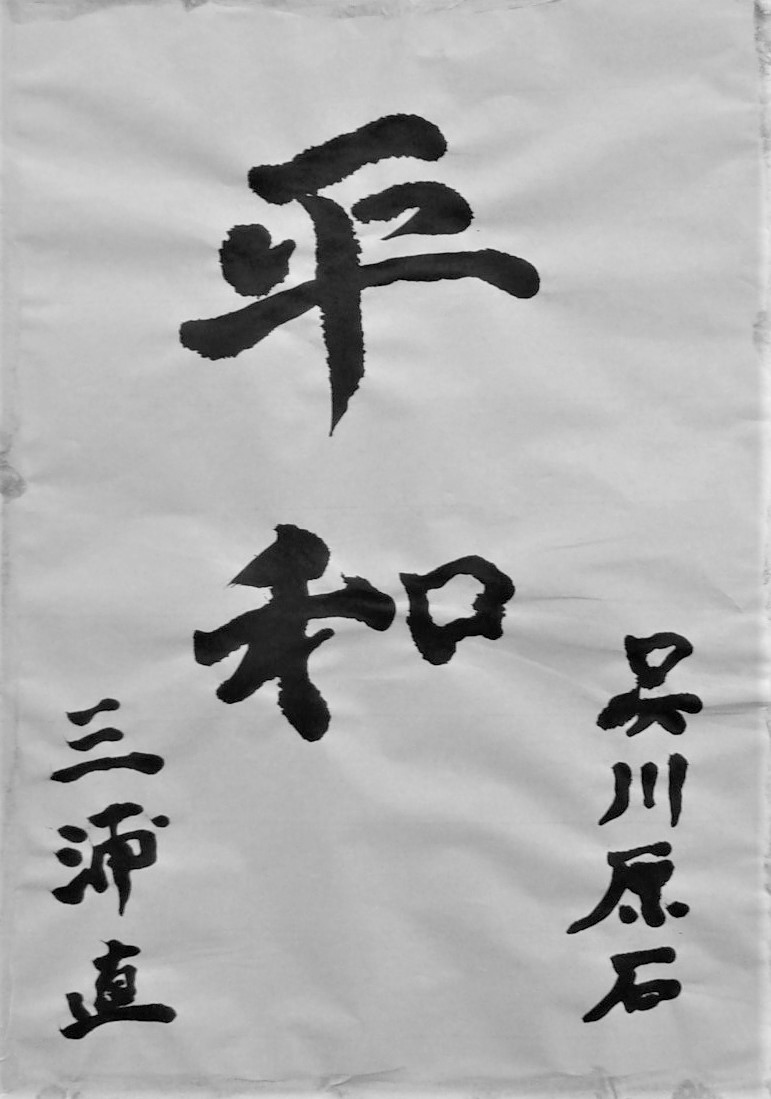 平和
呉川原石
三浦直